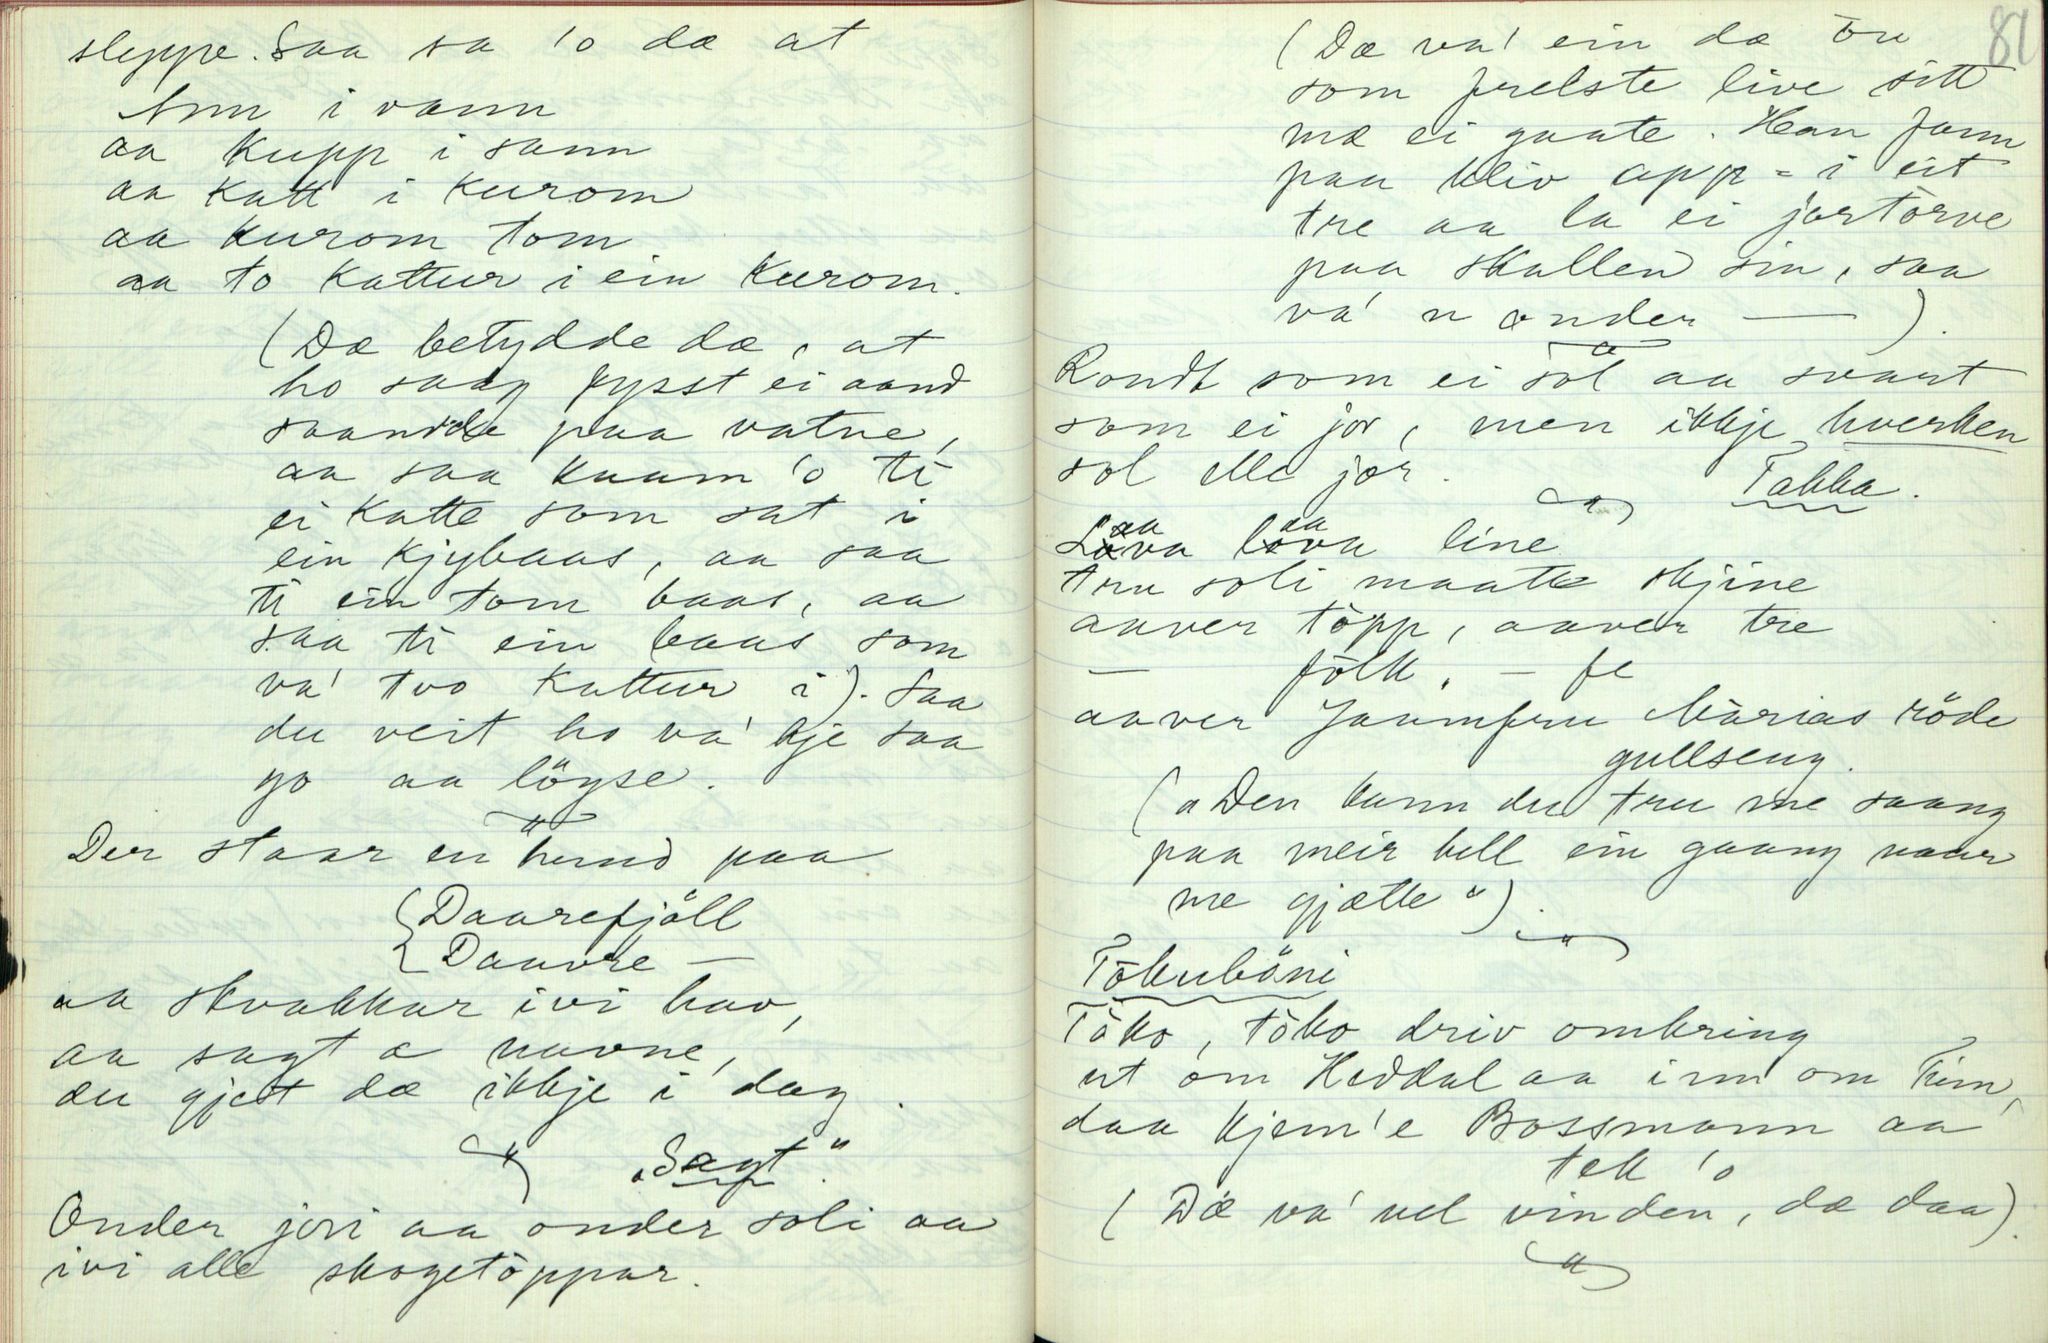 sleppe. Saa sa 'o dæ at
Ann i vann
aa Kupp i sann
aa Katt i Kurom
aa Kurom tom
aa to Kattur i ein Kurom.
(Dæ betydde dæ, at
ho saag fysst ei aand
saandde paa vatne,
aa saa kaam 'o ti
ei Katte som sat i
ein Kjybaas, aa saa
ti ein tom baas, aa
saa ti ein baas som
va' tvo Kattur i). Saa
du veit ho va' kje saa
go aa löyse.
Der staar en hund paa
Daarefjöll
Daavre —
aa skvakkar ivi hav,
aa sagt æ navne,
du gjet dæ ikkje i dag.
"Sagt."
Onder jori aa onder soli aa
ivi alle skogetöppar.
81
(Dæ va' ein dæ òu
som frelste live sitt
mæ ei gaate. Han fann
paa kliv opp-i eit
tre aa la ei jortòrve
paa skallen sin, saa
va' n onder — )
Rondt som ei sol aa svart
som ei jor, men ikkje hverken
sol elle jor.
Takka.
Laava laava line
tru soli maatte skjine
aaver töpp, aaver tre
— fölk, — fe
aaver Jaamfru Marias röde
gullseng.
("Den kann du tru me saang
paa meir hell ein gaang naar
me gjætte").
Tökubòni
Tòko, tòko driv omkring
ut om Heddal aa inn om Tinn,
daa kjem'e Bossmann aa
tek 'o
(Dæ va' vel vinden, dæ daa).